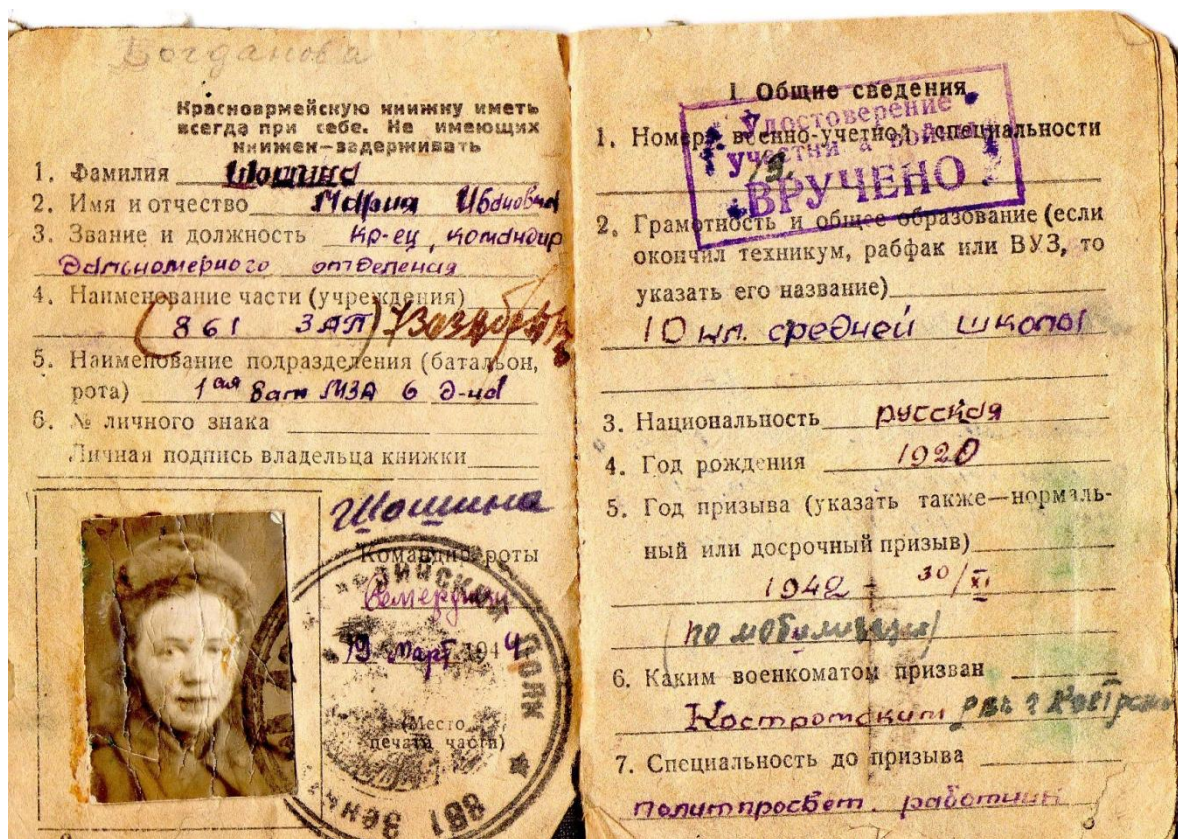 Богданова
Красноармейскую книжку иметь
всегда при себе. Не имеющих
книжек—задерживать
1. Фамилия Шошина
2. Имя и отчество Мария Ивановна
3. Звание и должность кр-ец, командир
дальномерного отделения
4. Наименование части (учреждения)
(861 ЗАП)
5. Наименование подразделения (батальон,
рота) 1ая бат МЗА 6 д-на
6. № личного знака
Личная подпись владельца книжки
Шошина
Командир роты
19 март 1944
(Место
печати части)
861 ПОЛК
I. Общие сведения
Удостоверение
участника войны
ВРУЧЕНО
1. Номера военно-учетной специальности
2. Грамотность и общее образование (если
окончил техникум, рабфак или ВУЗ, то
указать его название)
10 кл. средней школы
3. Национальность русская
4. Год рождения 1920
5. Год призыва (указать также—нормаль-
ный или досрочный призыв)
1942 - 30/XI
(по мобилизации)
6. Каким военкоматом призван
Костромским РВК г Кострома
7. Специальность до призыва
политпросвет. работник